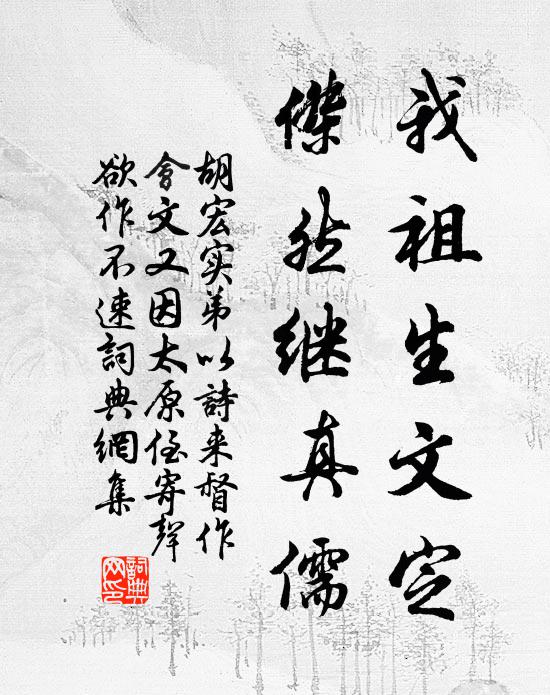 我祖生文定
傑然继真儒
胡宏实弟以詩来督作
會文又因太原侄寄聲
欲作不速詞典網集
詞典网印